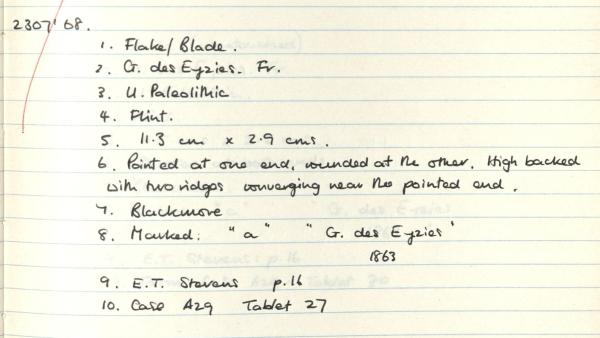 2307'68.
1. Flake/Blade.
2. G. des Eyzies. Fr.
3. U. Paleolithic
4. Flint.
5. 11.3 cm x 2.9 cms.
6. Pointed at one end, rounded at the other. High backed
with two ridges converging near the pointed end.
7. Blackmore
8. Marked: "a" "G. des Eyzies"
1863
9. E.T. Stevens p.16
10. Case A29 Tablet 27